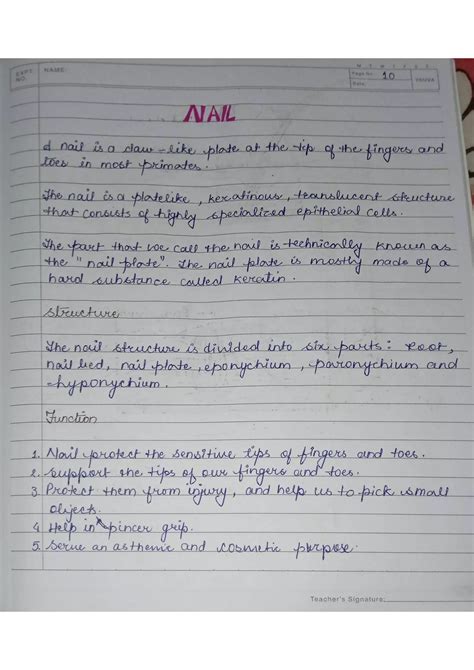 M T W T F S S
EXPT. NO.
NAME:
Page No. 10
Date:
YOUVA
NAIL
A nail is a claw-like plate at the tip of the fingers and
toes in most primates.
The nail is a platelike, keratinous, translucent structure
that consists of highly specialized epithelial cells.
The part that we call the nail is technically known as
the "nail plate". The nail plate is mostly made of a
hard substance called keratin.
Structure
The nail structure is divided into six parts: root,
nail bed, nail plate, eponychium, paronychium and
hyponychium.
Function
1. Nail protect the sensitive tips of fingers and toes.
2. support the tips of our fingers and toes.
3. Protect them from injury, and help us to pick small
objects.
4. Help in pincer grip.
5. Serve an asthemic and cosmetic purpose.
Teacher's Signature: